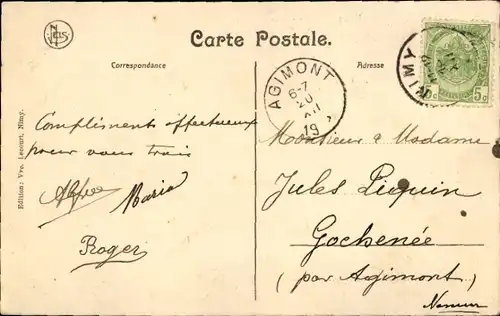 Nels
Carte Postale.
Correspondance
Adresse
NIMY
5c
AGIMONT
6-7
20
XII
19
Compliments affectueux
pour vous trois
Alfred
Maria
Roger
Monsieur & Madame
Jules Piquin
Gochenée
(par Agimont)
Namur
Edition: Vve. Lecourt, Nimy.